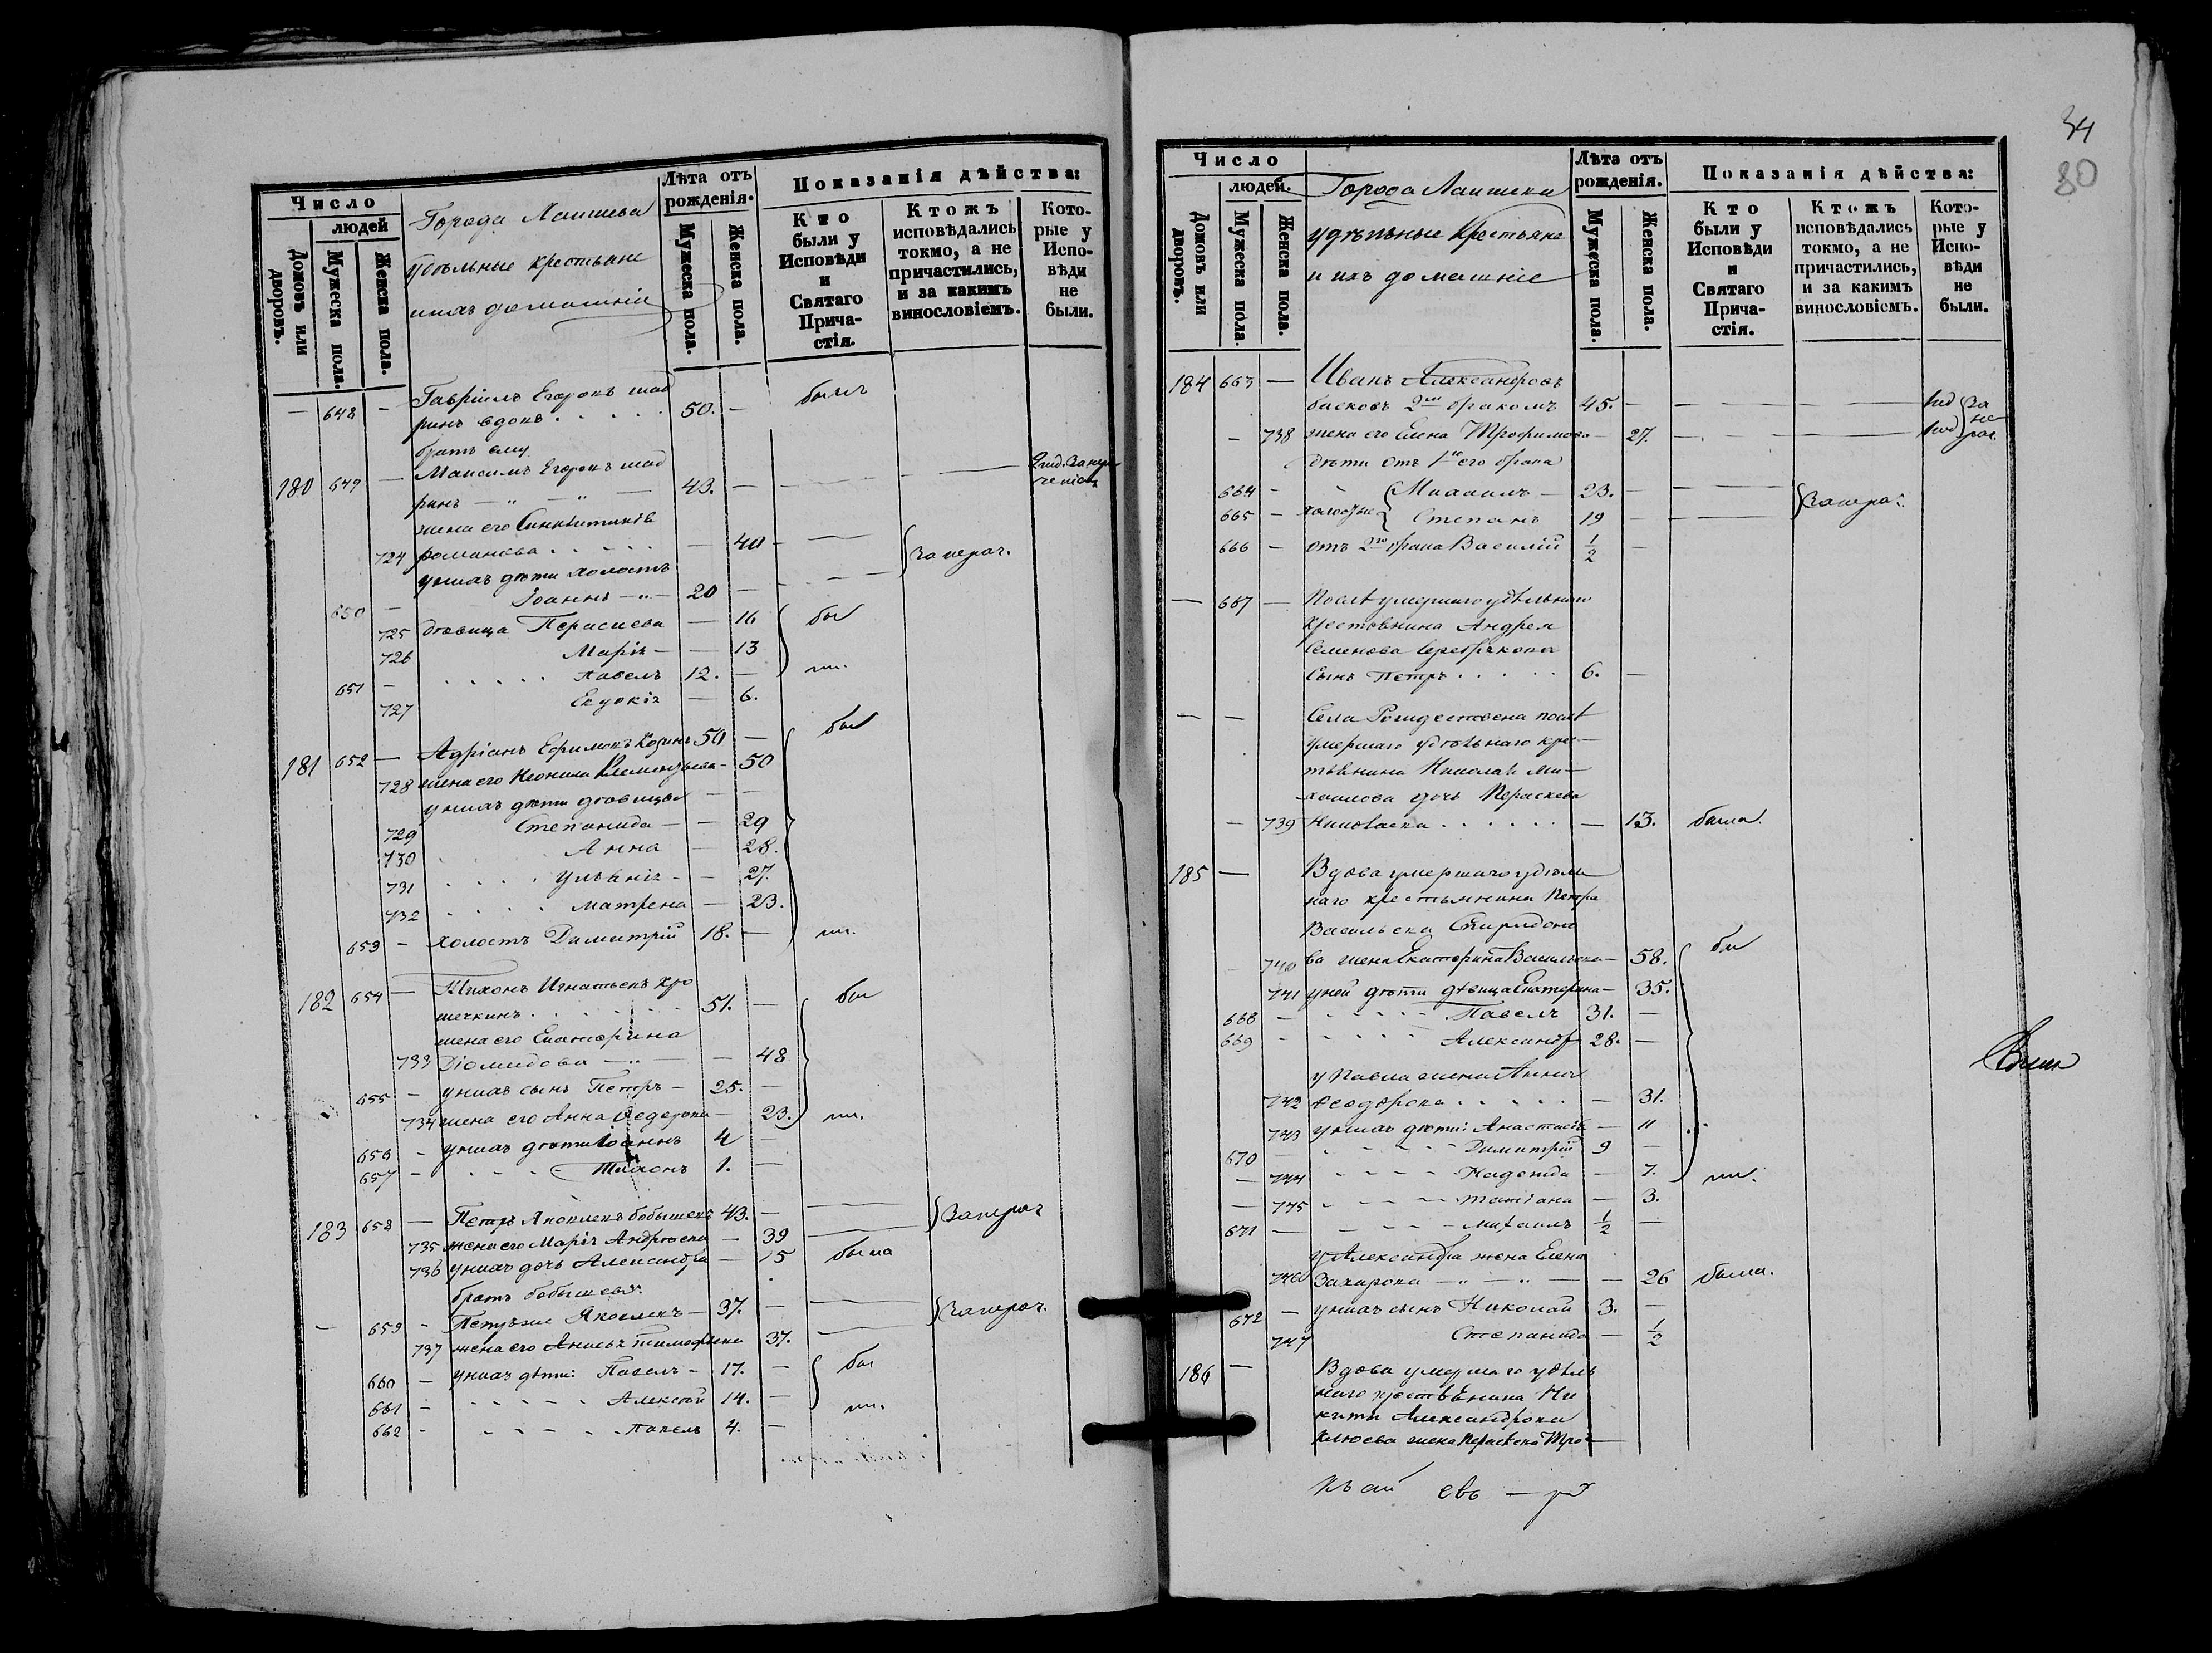 Число
людей
Домовъ или дворовъ.
Мужеска пола.
Женска пола.
Города Лаишева
удѣльные крестьяне
и ихъ домашніе
Лѣта отъ рожденія.
Мужеска пола.
Женска пола.
Показанія дѣйства:
Кто были у Исповѣди и Святаго Прича-стія.
Ктожъ исповѣдались токмо, а не причастились, и за какимъ винословіемъ.
Кото-рые у Испо-вѣди не были.
— 648 — Гавріилъ Егоровъ шад
ринъ вдовъ 50. — былъ
братъ ему
180 649 — Максимъ Егоровъ шад
ринъ — " — " — 43. —
жена его Синклитикія
724 романова — 40 — } за нерач.
у нихъ дѣти холостъ
650 — Іоаннъ — " — 20 —
725 дѣвица Параскева — 16 бы
726 Марія — — 13
651 — Павелъ 12. — ли.
727 Евдокія — 6.
181 652 — Адріанъ Ефимовъ 50 — бы
728 жена его Неонила Клементьева — 50
у нихъ дѣти дѣвицы — —
729 Степанида — — 29
730 Анна — 28.
731 Ульянія — — 27.
732 Матрена — 23.
653 — холостъ Димитрій 18. — ли.
182 654 — Тихонъ Игнатьевъ хро
мечкинъ 51. — бы
жена его Екатерина
733 Діомидова — " — — 48
655 — у нихъ сынъ Петръ — 25. —
734 жена его Анна Ѳедорова — 23. ли.
656 — у нихъ дѣти Іоаннъ 4 —
657 — Тихонъ 1. —
183 658 — Петръ Яковлевъ бобышевъ 43. — — } за нерач
735 жена его Марія Андреева — 39 —
736 у нихъ дочь Александра — 15 была
братъ бобышева:
— 659 — Петръ же Яковлевъ — 37. — — } за нерач.
737 жена его Анисья тимофѣева 37. —
660 — у нихъ дѣти: Павелъ — 17. — бы
661 — Алексѣй 14. — ли.
662 — Павелъ 4. —
34
80
Число
людей.
Домовъ или дворовъ.
Мужеска пола.
Женска пола.
Города Лаишева
удѣльные Крестьяне
и ихъ домашніе
Лѣта отъ рожденія.
Мужеска пола.
Женска пола.
Показанія дѣйства:
Кто были у Исповѣди и Святаго Прича-стія.
Ктожъ исповѣдались токмо, а не причастились, и за какимъ винословіемъ.
Кото-рые у Испо-вѣди не были.
184 663 — Иванъ Александровъ
басковъ 2мъ бракомъ 45. — — — } за не
— 738 жена его Елена Трофимова — 27. — — рач.
дѣти отъ 1го его брака
664 — Михаилъ — 23. — — } За нерач.
665 — холосты { Степанъ 19 — —
666 — отъ 2го брака Василій 1/2 —
— 667 — Послѣ умершаго удѣльнаго
крестьянина Андрея
Семенова Серебрякова
Сынъ Петръ 6. —
— — Села Рождествена послѣ
умершаго удѣльнаго кре-
стьянина Николая Ми-
хаилова дочь Параскева
— 739 Николаева — 13. была.
185 — Вдова умершаго удѣль
наго крестьянина Петра
Васильева Спиридоно
740 ва жена Екатерина Васильева — 58. бы
741 у ней дѣти дѣвица Екатерина — 35.
668 — Павелъ 31. —
669 — Александръ 28. —
у Павла жена Анна
742 Ѳеодорова — 31.
743 у нихъ дѣти: Анастасія — 11
670 — Димитрій 9 —
— 744 Надежда — 7. ли.
— 745 Татіана — 3.
671 — Михаилъ 1/2 —
у Александра жена Елена
746 Захарова — " — " — — 26 была.
672 — у нихъ сынъ Николай 3. —
747 Степанида — 1/2
186 — Вдова умершаго удѣль
наго крестьянина Ни
киты Александрова
Клюева жена Параскева Тро-